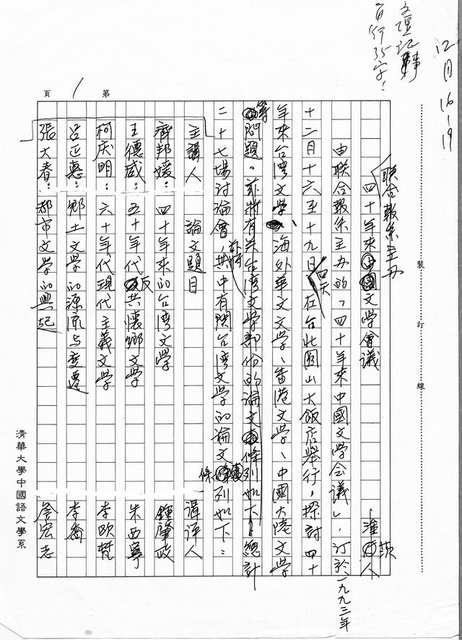 12月16-19
文壇記事
百行35字!
聯合報系主办
四十年來中國文學會議
由联合報系主办的「四十年來中國文學会議」,订於一九九三年
十二月十六至十九日四天,在台北圓山大飯店举行,探討四十
年來台湾文学、海外華文文學、香港文學、中國大陸文学
等問題,總計
二十七場讨論會,其中有関台湾文学的論文條列如下:
主講人 論文題目 講評人
齊邦媛:四十年來的台湾文學 鍾肇政
王德威:五十年代反共懷鄉文學 朱西寧
柯庆明:六十年代現代主義文學 李欧梵
呂正惠:鄉土文學的源流与变遷 李喬
張大春:都市文學的興起 詹宏志
第 1 頁
裝 訂 線
清華大學中國語文學系